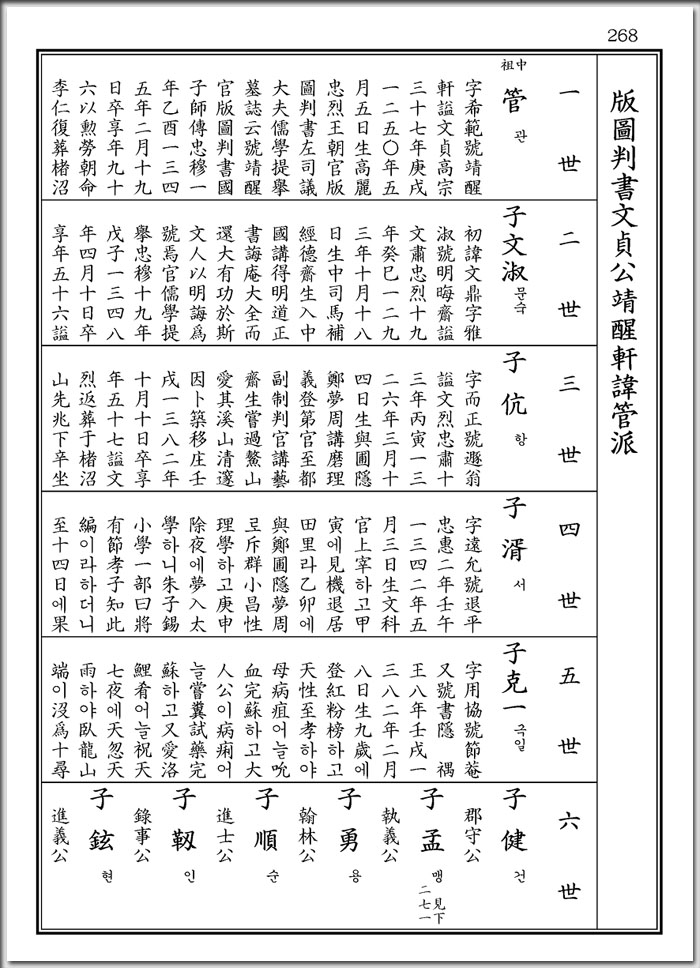 268
版圖判書文貞公靖醒軒諱管派
一世
中祖
管 관
字希範號靖醒
軒謚文貞高宗
三十七年庚戌
一二五〇年五
月五日生高麗
忠烈王朝官版
圖判書左司議
大夫儒學提擧
墓誌云號靖醒
官版圖判書國
子師傳忠穆一
年乙酉一三四
五年二月十九
日卒享年九十
六以勳勞朝命
李仁復葬楮沼
二世
子文淑 문숙
初諱文鼎字雅
淑號明晦齋謚
文肅忠烈十九
年癸巳一二九
三年十月十八
日生中司馬補
經德齋生入中
國講得明道正
書誨庵大全而
還大有功於斯
文人以明誨爲
號焉官儒學提
擧忠穆十九年
戊子一三四八
年四月十日卒
享年五十六謚
三世
子伉 항
字而正號遯翁
謚文烈忠肅十
三年丙寅一三
二六年三月十
四日生與圃隱
鄭夢周講磨理
義登第官至都
副制判官講藝
齋生嘗過鰲山
愛其溪山清邃
因卜築移庄壬
戌一三八二年
十月十日卒享
年五十七謚文
烈返葬于楮沼
山先兆下辛坐
四世
子湑 서
字遠允號退平
忠惠二年壬午
一三四二年五
月三日生文科
官上宰하고甲
寅에見機退居
田里라乙卯에
與鄭圃隱夢周
로斥群小昌性
理學하고庚申
除夜에夢入太
學하니朱子錫
小學一部曰將
有節孝子知此
編이라하더니
至十四日에果
五世
子克一 극일
字用協號節菴
又號書隱 禑
王八年壬戌一
三八二年二月
八日生九歲에
登紅粉榜하고
天性至孝하야
母病疽어늘吮
血完蘇하고大
人公이病痢어
늘嘗糞試藥完
蘇하고又愛洛
鯉肴어늘祝天
七夜에天忽天
雨하야臥龍山
端이沒爲十尋
六世
子健 건
郡守公
子孟 맹
見下
二七一
執義公
子勇 용
翰林公
子順 순
進士公
子靱 인
錄事公
子鉉 현
進義公